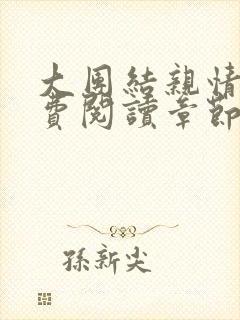 大團結親情
費閱讀章節
孫新尖